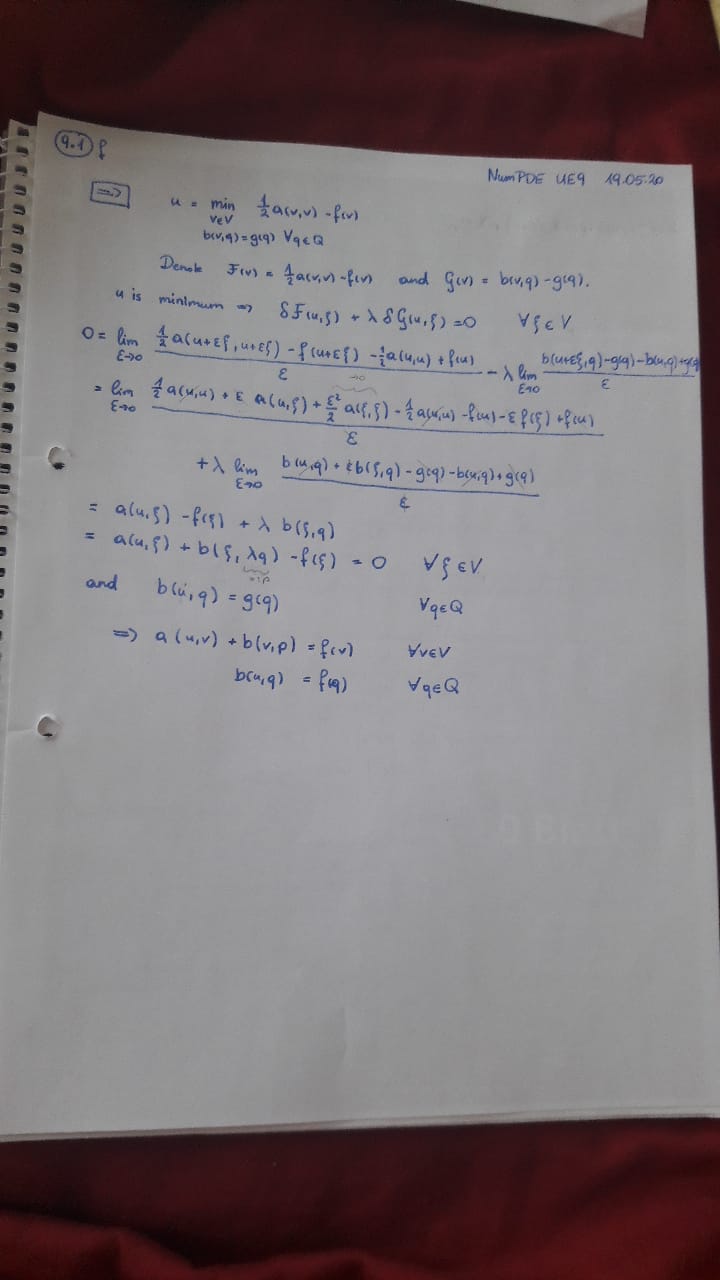 9.1) f
NumPDE UE9 19.05.20
=>
u = min 1/2 a(v,v) - f(v)
v∈V
b(v,q)=g(q) ∀q∈Q
Denote F(v) = 1/2 a(v,v) - f(v) and G(v) = b(v,q) - g(q).
u is minimum => δF(u,ξ) + λ δG(u,ξ) = 0 ∀ξ∈V
0 = lim ε→0 [1/2 a(u+εξ, u+εξ) - f(u+εξ) - 1/2 a(u,u) + f(u)] / ε - λ lim ε→0 [b(u+εξ,q) - g(q) - b(u,q) + g(q)] / ε
→0
= lim ε→0 [1/2 a(u,u) + ε a(u,ξ) + ε²/2 a(ξ,ξ) - 1/2 a(u,u) - f(u) - ε f(ξ) + f(u)] / ε
+ λ lim ε→0 [b(u,q) + εb(ξ,q) - g(q) - b(u,q) + g(q)] / ε
= a(u,ξ) - f(ξ) + λ b(ξ,q)
= a(u,ξ) + b(ξ, λq) - f(ξ) = 0 ∀ξ∈V
=:p
and b(u,q) = g(q) ∀q∈Q
=> a(u,v) + b(v,p) = f(v) ∀v∈V
b(u,q) = f(q) ∀q∈Q